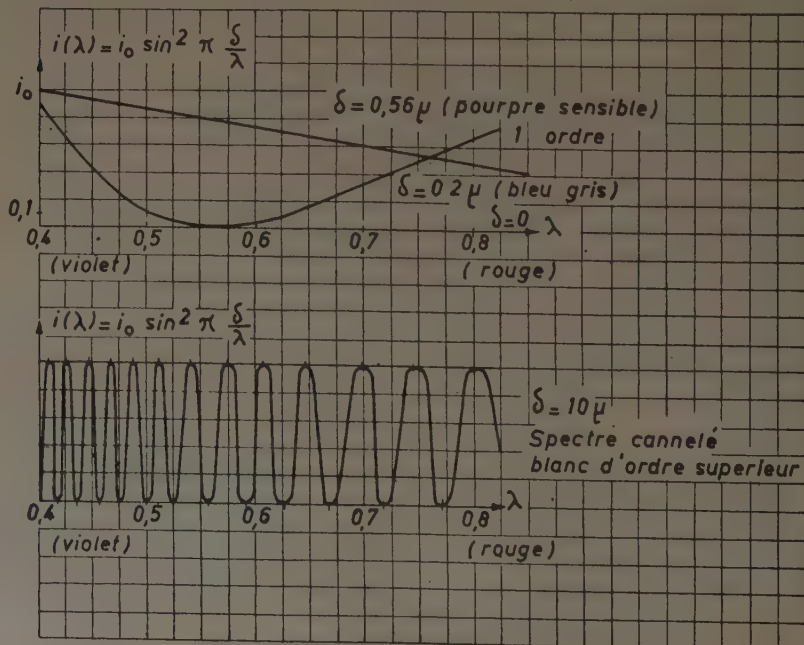 i(λ) = i₀ sin² π δ/λ
i₀
δ = 0,56 μ (pourpre sensible)
1 ordre
δ = 0 2 μ (bleu gris)
0,1
δ = 0
λ
0,4 0,5 0,6 0,7 0,8
(violet) (rouge)
i(λ) = i₀ sin² π δ/λ
δ = 10 μ
Spectre cannelé
blanc d'ordre superieur
λ
0,4 0,5 0,6 0,7 0,8
(violet) (rouge)